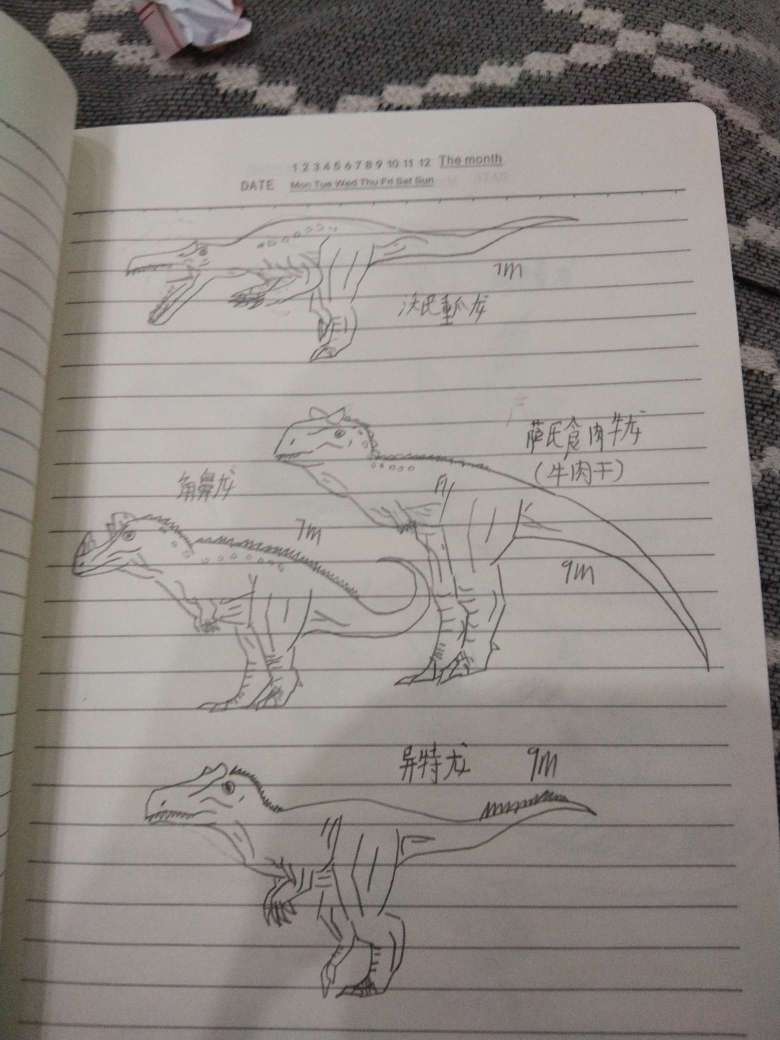 1 2 3 4 5 6 7 8 9 10 11 12 The month
DATE Mon Tue Wed Thu Fri Sat Sun
7m
沃氏重爪龙
萨氏食肉牛龙
(牛肉干)
角鼻龙
7m
9m
异特龙 9m